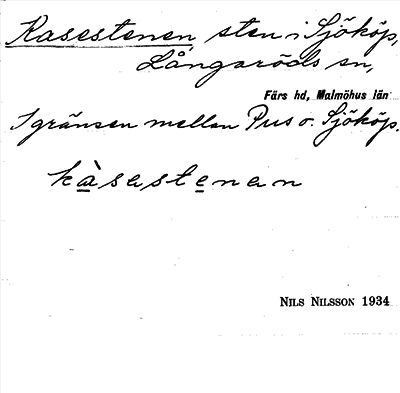 Kasestenen, sten i Sjököp,
Långaröds sn,
Färs hd, Malmöhus län
I gränsen mellan Pus o. Sjököp.
kàsastenan
NILS NILSSON 1934